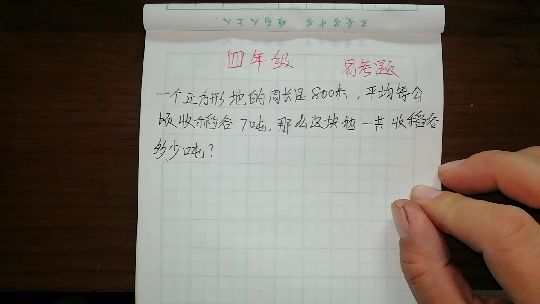 四年级 易考题
一个正方形地的周长是800米，平均每公
顷收稻谷7吨，那么这块地一共收稻谷
多少吨？